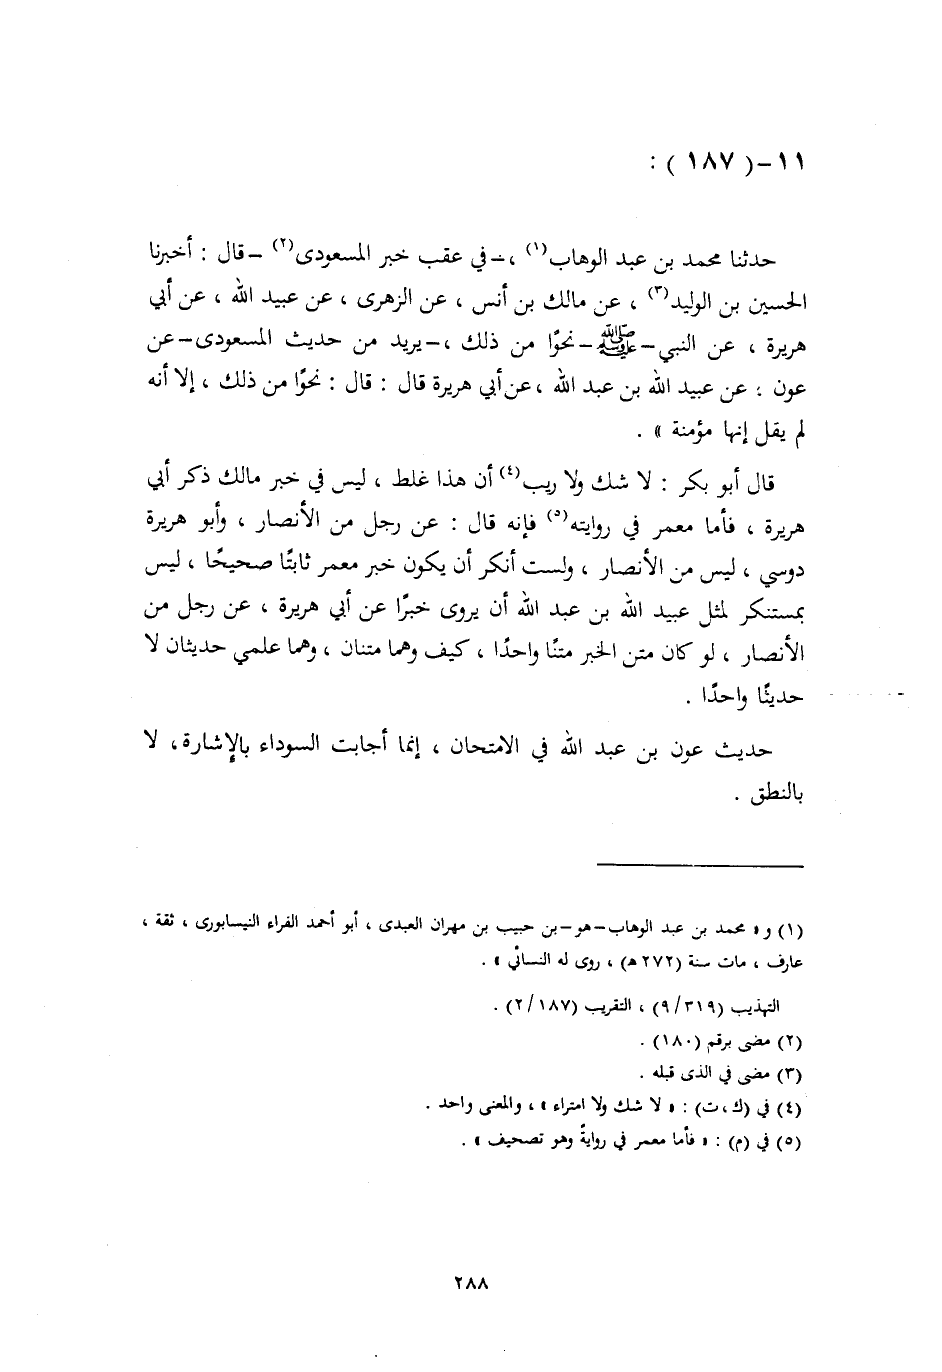 ١١-( ١٨٧ ) :
حدثنا محمد بن عبد الوهاب(١) ،-في عقب خبر المسعودى(٢) -قال : أخبرنا
الحسين بن الوليد(٣) ، عن مالك بن أنس ، عن الزهرى ، عن عبيد الله ، عن أبي
هريرة ، عن النبي-ﷺ-نحوًا من ذلك ،-يريد من حديث المسعودى-عن
عون ؛ عن عبيد الله بن عبد الله ، عن أبي هريرة قال : قال : نحوًا من ذلك ، إلا أنه
لم يقل إنها مؤمنة » .
قال أبو بكر : لا شك ولا ريب(٤) أن هذا غلط ، ليس في خبر مالك ذكر أبي
هريرة ، فأما معمر في روايته(٥) فإنه قال : عن رجل من الأنصار ، وأبو هريرة
دوسي ، ليس من الأنصار ، ولست أنكر أن يكون خبر معمر ثابتًا صحيحًا ، ليس
بمستنكر لمثل عبيد الله بن عبد الله أن يروى خبرًا عن أبي هريرة ، عن رجل من
الأنصار ، لو كان متن الخبر متنًا واحدًا ، كيف وهما متنان ، وهما علمي حديثان لا
حديثًا واحدًا .
حديث عون بن عبد الله في الامتحان ، إنما أجابت السوداء بالإشارة، لا
بالنطق .
(١) و « محمد بن عبد الوهاب-هو-بن حبيب بن مهران العبدى ، أبو أحمد الفراء النيسابورى ، ثقة ،
عارف ، مات سنة (٢٧٢ هـ) ، روى له النسائي » .
التهذيب (٩/٣١٩) ، التقريب (٢/١٨٧) .
(٢) مضى برقم (١٨٠) .
(٣) مضى في الذى قبله .
(٤) في (ك، ت) : « لا شك ولا امتراء » ، والمعنى واحد .
(٥) في (م) : « فأما معمر في روايةً وهو تصحيف » .
٢٨٨